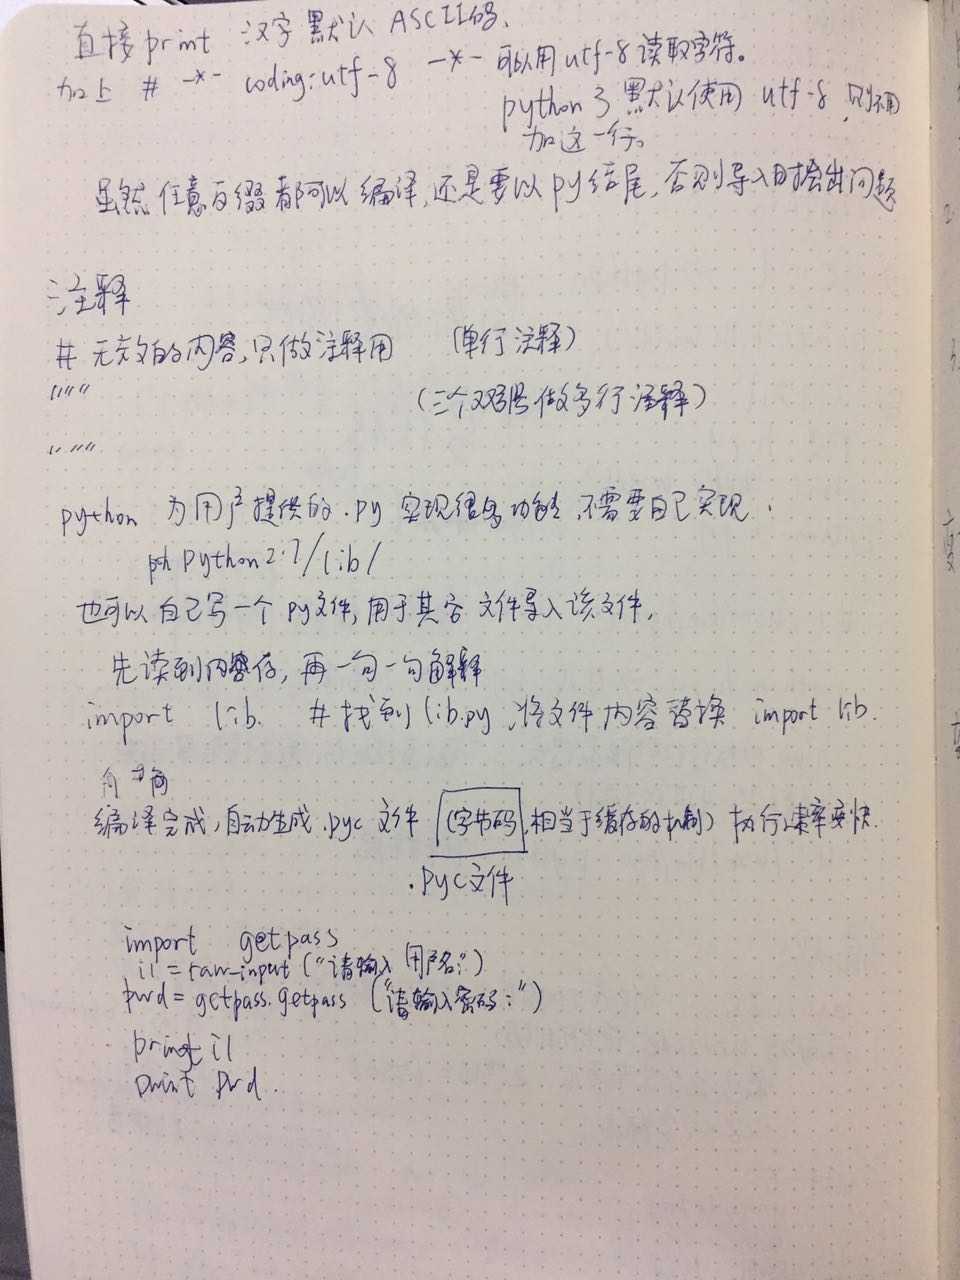 直接print 汉字 默认 ASCII码.
加上 # -*- coding:utf-8 -*- 可以用utf-8读取字符。
python 3 默认使用 utf-8, 则不用
加这一行。
虽然任意后缀都可以编译,还是要以py结尾,否则导入时会出问题
注释
# 无效的内容,只做注释用 (单行注释)
"""
(三个双引号做多行注释)
"""
python 为用户提供的.py 实现很多功能,不需要自己实现.
Python2.7/lib/
也可以自己写一个py文件,用于其它文件导入该文件.
先读到内存,再一句一句解释
import lib. # 找到lib.py,将文件内容替换 import lib.
编译完成,自动生成.pyc文件 (字节码,相当于缓存的机制) 执行速率变快.
.pyc文件
import getpass
i1 = raw_input ("请输入用户名:")
pwd = getpass.getpass ("请输入密码:")
print i1
print pwd.